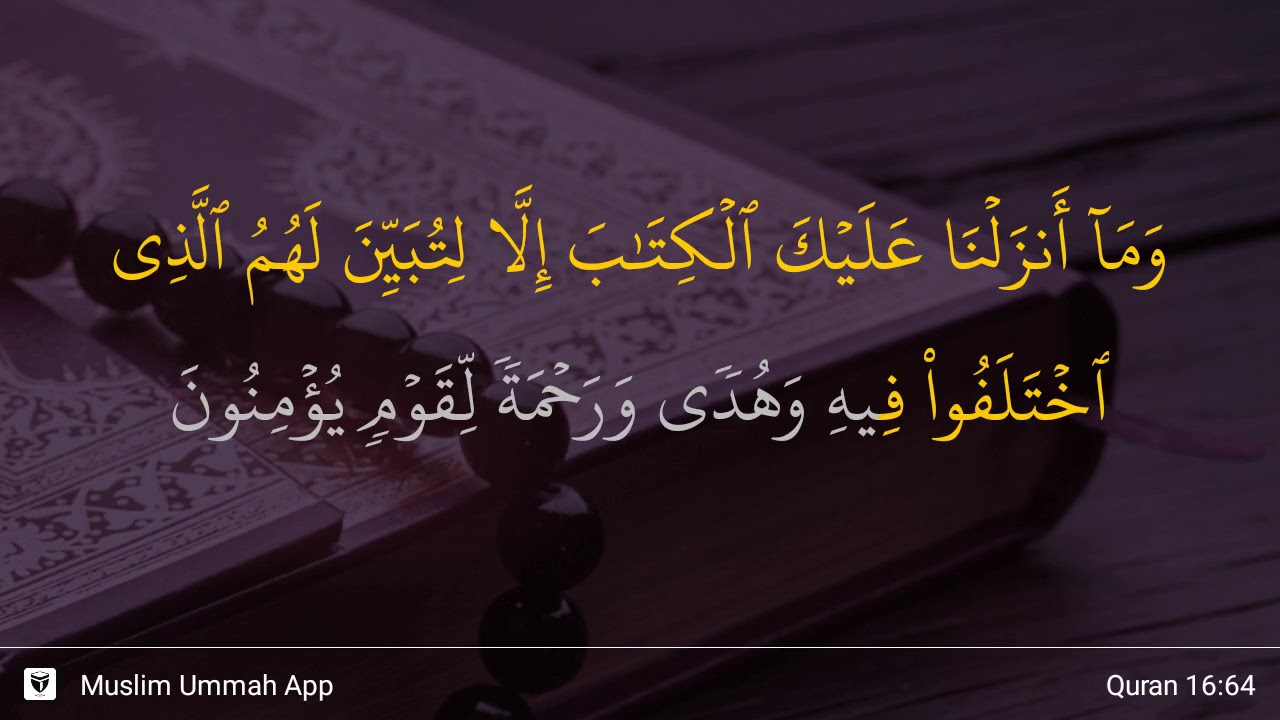 وَمَآ أَنزَلْنَا عَلَيْكَ ٱلْكِتَـٰبَ إِلَّا لِتُبَيِّنَ لَهُمُ ٱلَّذِى
ٱخْتَلَفُوا۟ فِيهِ وَهُدًى وَرَحْمَةً لِّقَوْمٍ يُؤْمِنُونَ
Muslim Ummah App
Quran 16:64